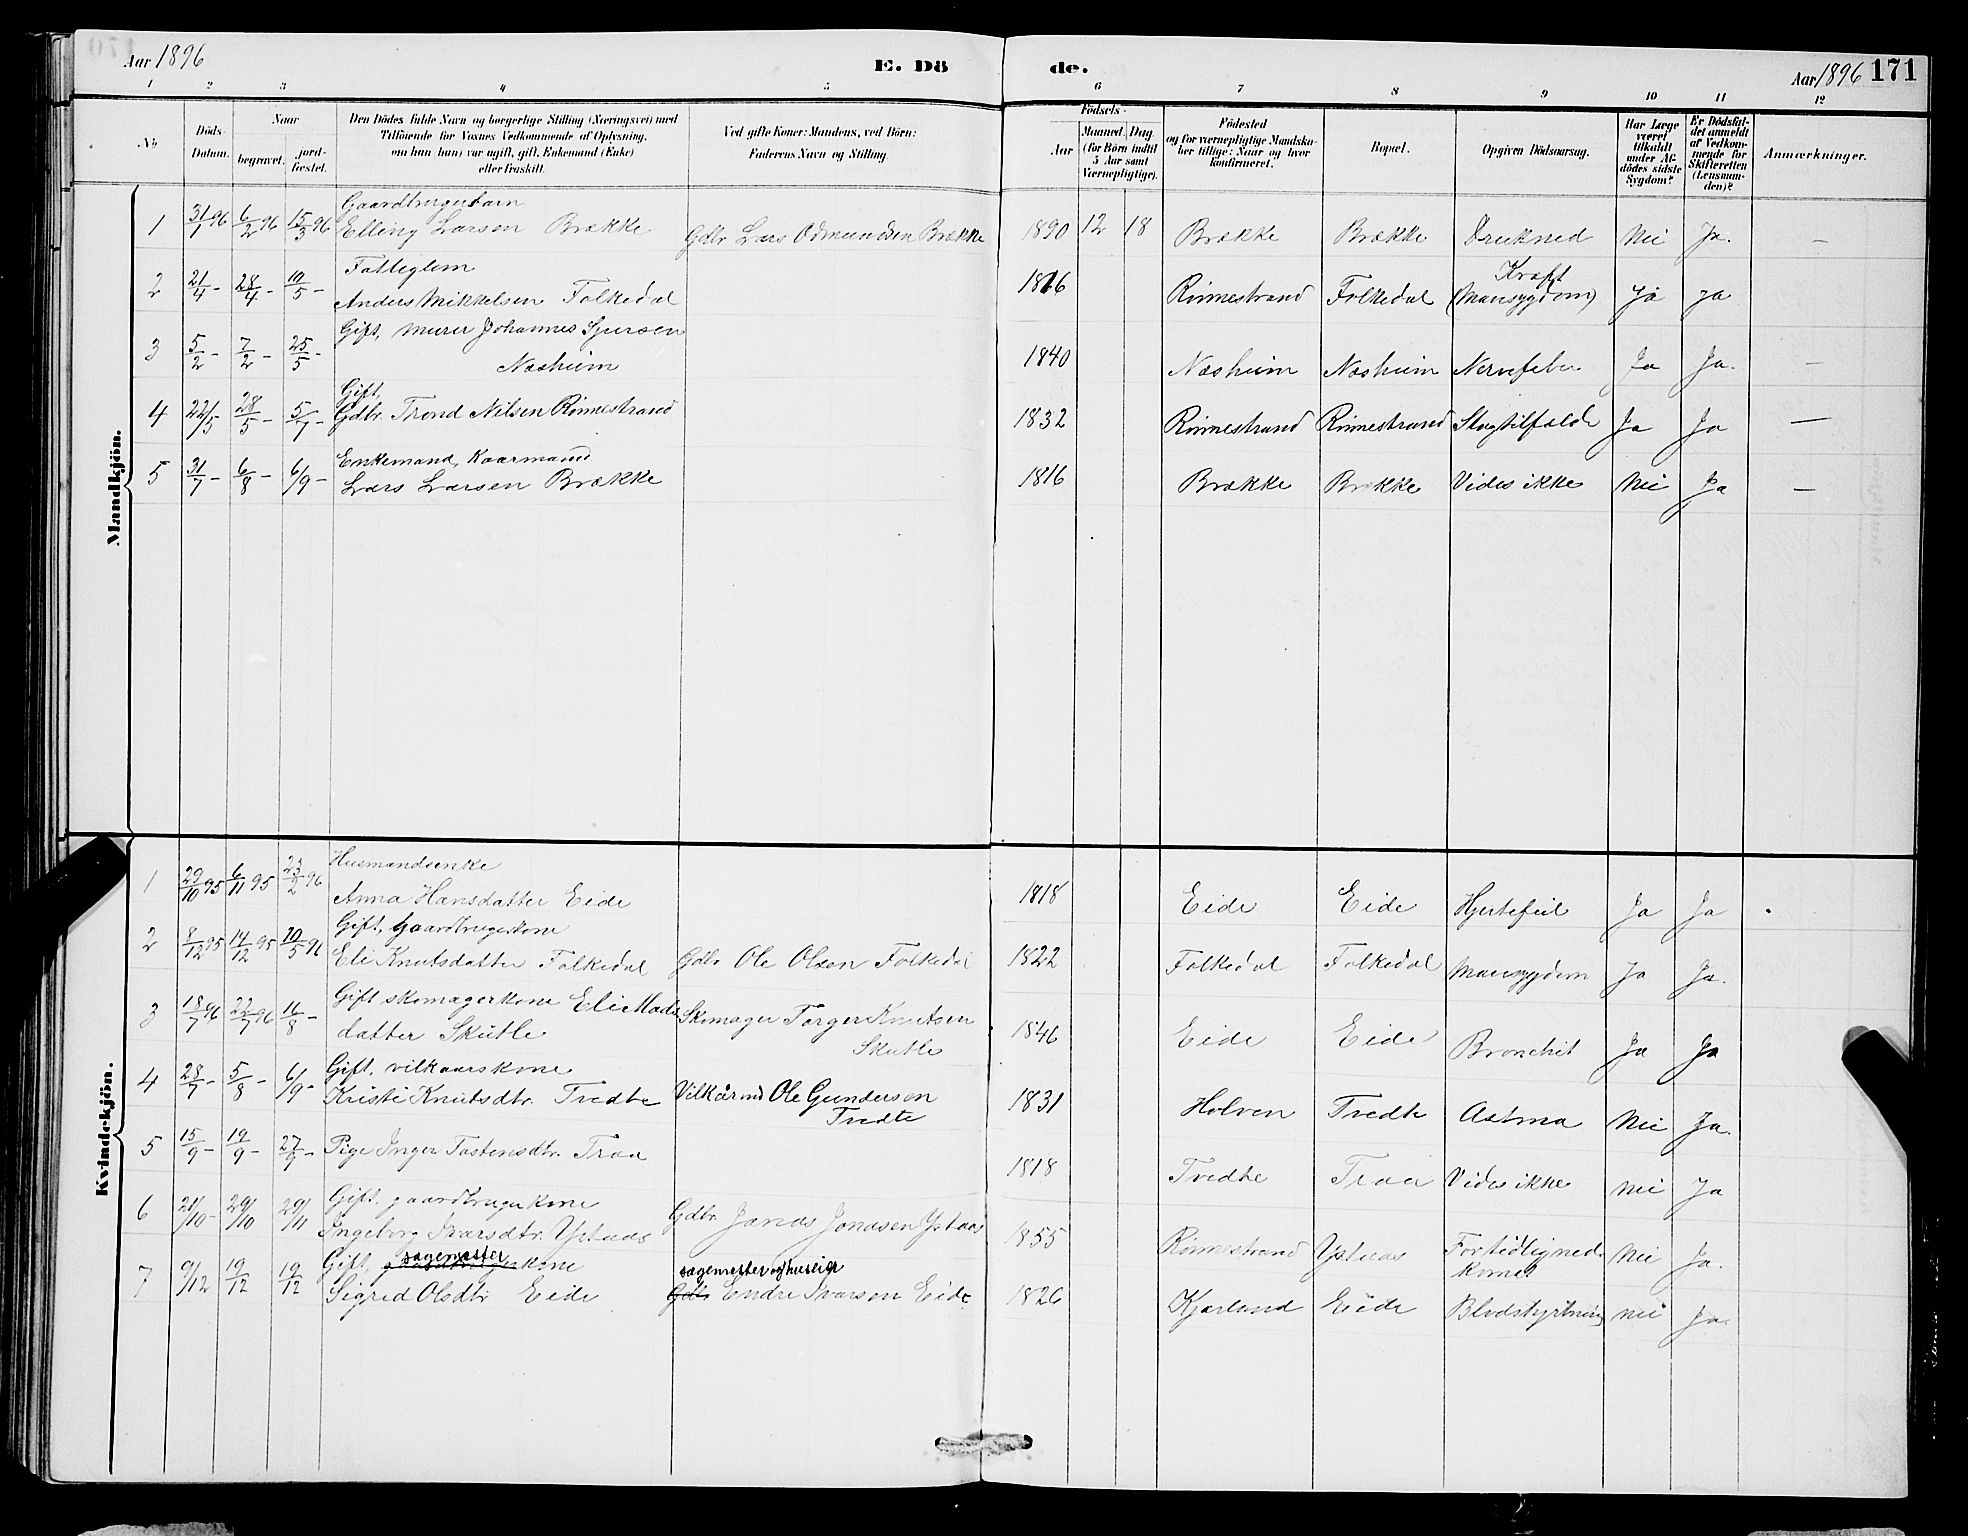 Aar 1896
E. Dö
de.
Aar 1896 171
1 2 3 4 5 6 7 8 9 10 11 12
No
Döds-
Datum.
Naar
begravet.
jord-
fæstet.
Den Dödes fulde Navn og borgerlige Stilling (Næringsvei) med
Tilföiende for Voxnes Vedkommende af Oplysning,
om hun (han) var ugift, gift, Enkemand (Enke)
eller fraskilt.
Ved gifte Koner: Mandens, ved Börn:
Faderens Navn og Stilling.
Födsels-
Aar
Maaned. Dag
(for Börn indtil
5 Aar samt
Værnepligtige).
Födested
og for værnepligtige Mandskaber tillige: Naar og hvor
konfirmeret.
Bopæl.
Opgiven Dödsaarsag.
Har Læge
været
tilkaldt
under Af-
dödes sidste
Sygdom?
Er Dödsfal-
det anmeldt
af Vedkom-
mende for
Skifteretten
(Lensman-
den)?
Anmærkninger.
Mandkjön.
Gaardbrugerbarn
1 31/1 96 6/2 96 15/3 96 Elling Larsen Brække Gdbr Lars Odmundsen Brække 1890 12 18 Brække Brække Druknet Nei Ja. —
Fatteglem
2 21/4 – 28/4 – 10/5 – Anders Mikkelsen Folkedal 1816 Rinnestrand Folkedal Kræft (Mavesygdom) Ja Ja
Gift, Murer Johannes Sjursen
3 5/2 – 7/2 – 25/5 – Næsheim 1840 Næsheim Næsheim Nervefeber Ja Ja. —
Gift,
4 22/5 28/5 – 5/7 – Gdbr. Trond Nilsen Rinnestrand 1832 Rinnestrand Rinnestrand Slagtilfælde Ja Ja —
Enkemand, Kaarmand
5 31/7 – 6/8 – 6/9 – Lars Larsen Brække 1816 Brække Brække Vides ikke Nei Ja —
Kvindekjön.
Husmandsenke
1 29/10 95 6/11 95 23/2 96 Anna Hansdatter Eide 1818 Eide Eide Hjertefeil Ja Ja
Gift, Gaardbrugerkone
2 8/12 95 14/12 95 10/5 96 Eli Knutsdatter Folkedal Gdbr Ole Olsen Folkedal 1822 Folkedal Folkedal Mavesygdom Ja Ja.
Gift skomagerkone Eli Mads
3 18/7 96 22/7 96 16/8 – datter Skutle Skomager Torger Knutsen
Skutle 1846 Eide Eide Bronchit Ja Ja
Gift, vilkaarskone
4 28/7 – 5/8 – 6/9 – Kristi Knutsdtr. Tredte Vilkårmd Ole Gunderson
Tredte 1831 Holven Tredte Astma Nei Ja.
5 15/9 – 19/9 – 27/9 – Pige Inger Tostensdtr. Traa 1818 Tvedte Traa Vides ikke Nei Ja
Gift, gaardbrugerkone
6 21/10 – 29/10 29/11 Ingeborg Ivarsdtr. Ystaas Gdbr. Jonas Jonasen Ystaas 1855 Rinnestrand Ystaas For tidlig nedkomst Nei Ja.
Gift, sagemester kone
7 9/12 19/12 19/12 Sigrid Olsdtr Eide sagemester og huseier
Gdbr Endre Ivarson Eide 1826 Kjærland Eide Blodstyrtning Nei Ja.